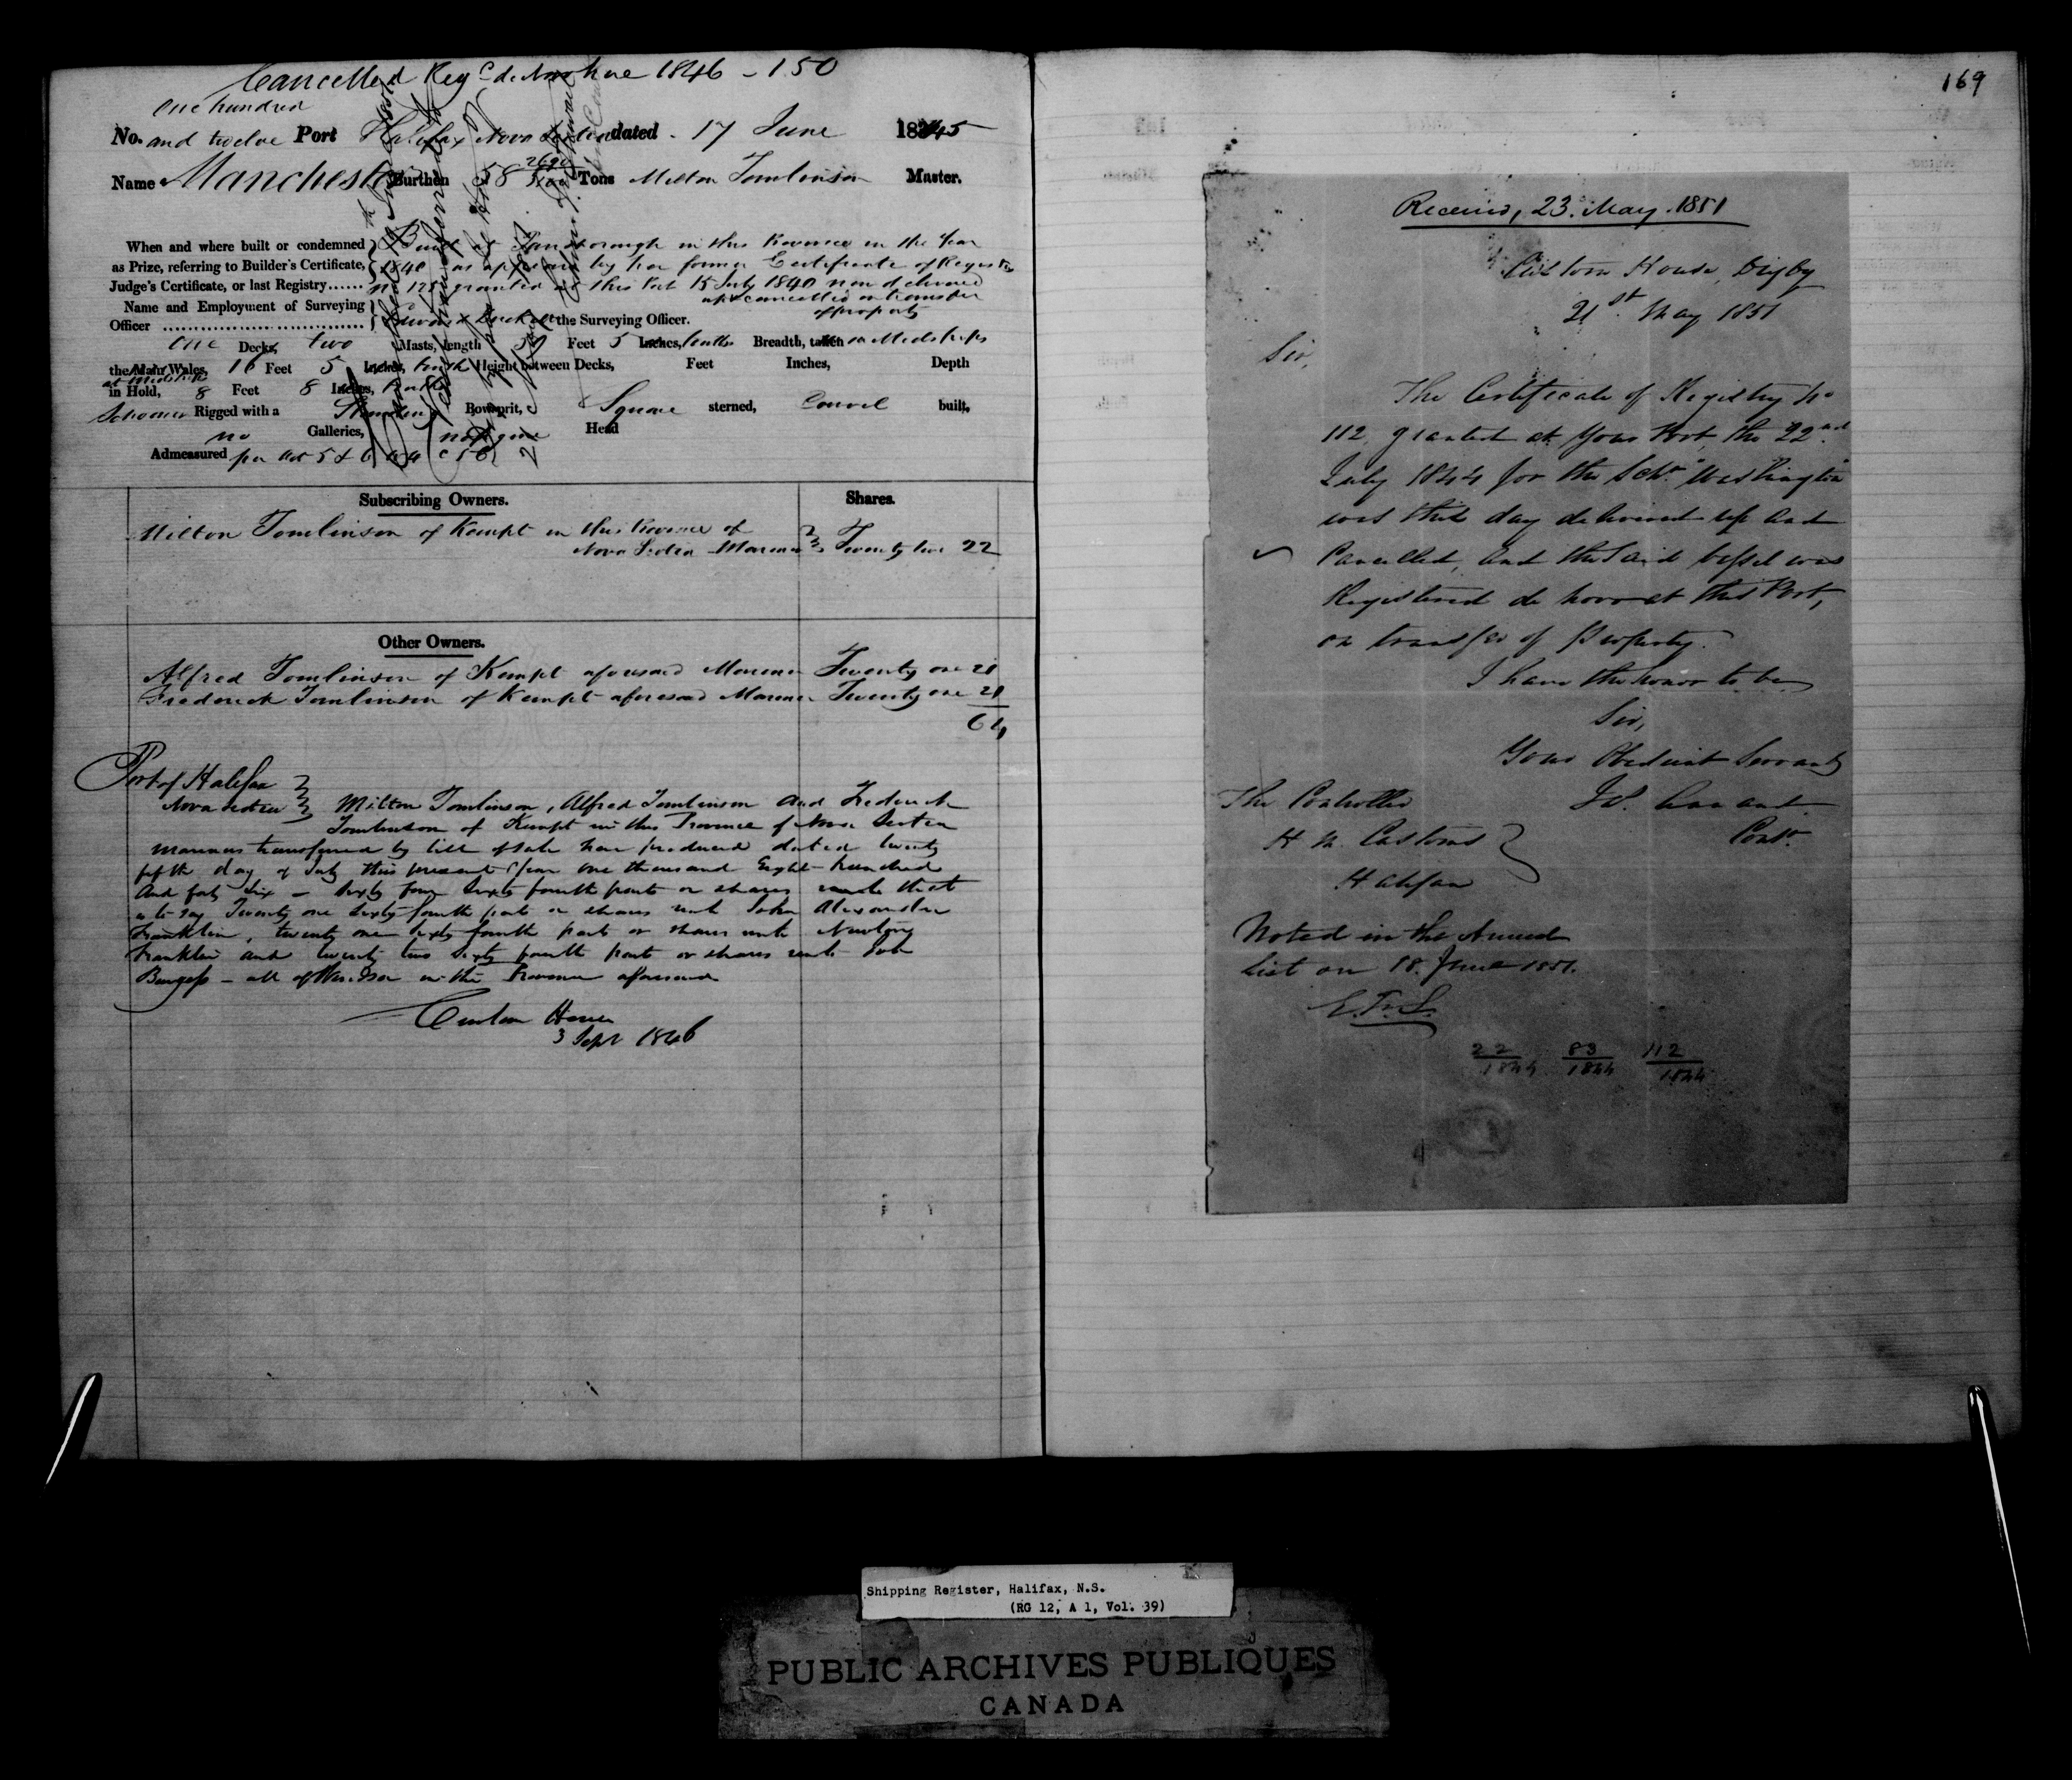 Cancelled Reg de Novo here 1846 - 150
one hundred
No. and twelve Port Halifax Nova Scotia dated - 17 June 1845
Name Manchester Burthen 58 Tons Milton Tomlinson Master.
When and where built or condemned as Prize, referring to Builder's Certificate, Judge's Certificate, or last Registry......
Built at in this Province in the Year
1840 as appears by her former Certificate of Registry
No granted at this Port 15 July 1840 now delivered
up & cancelled on transfer
of property
Name and Employment of Surveying Officer
the Surveying Officer.
One Decks, two Masts, length Feet 5 Inches, tenths Breadth, taken in Midships
the Main Wales, 16 Feet 5 Inches, tenths Height between Decks, Feet Inches, Depth
at Midships
in Hold, 8 Feet 8 Inches, tenths
Schooner Rigged with a Standing Bowsprit, Square sterned, Carvel built,
no Galleries, no figure Head
Admeasured per Act 5 & 6
Subscribing Owners. Shares.
Milton Tomlinson of Kempt in this Province of
Nova Scotia Mariner Twenty two 22
Other Owners.
Alfred Tomlinson of Kempt aforesaid Mariner Twenty one 21
Frederick Tomlinson of Kempt aforesaid Mariner Twenty one 21
64
Port of Halifax
Nova Scotia Milton Tomlinson, Alfred Tomlinson and Frederick
Tomlinson of Kempt in this Province of Nova Scotia
Mariners transferred by bill of sale here produced dated twenty
fifth day of July this present Year one thousand Eight hundred
and forty Six - Sixty four Sixty fourth parts or shares that
is to say Twenty one Sixty fourth parts or shares unto John Alexander
Franklin, twenty one sixty fourth parts or shares unto
Franklin and twenty two Sixty fourth parts or shares unto
Burgess - all of Windsor in the Province aforesaid
Custom House
3 Sept 1846
169
Received, 23. May. 1851
Custom House, Digby
21st May 1851
Sir,
The Certificate of Registry No
112, granted at Your Port, the 22nd
July 1844 for the Schr "Washington"
was this day delivered up and
Cancelled, and the said vessel was
Registered de novo at this Port,
on transfer of property.
I have the honor to be
Sir,
Your Obedient Servant
The Controller
H M. Customs
Halifax
Contr.
Noted in the Annual
List on 18. June 1851.
22
1844
83
1844
112
1844
Shipping Register, Halifax, N.S.
(RG 12, A 1, Vol. 39)
PUBLIC ARCHIVES PUBLIQUES
CANADA